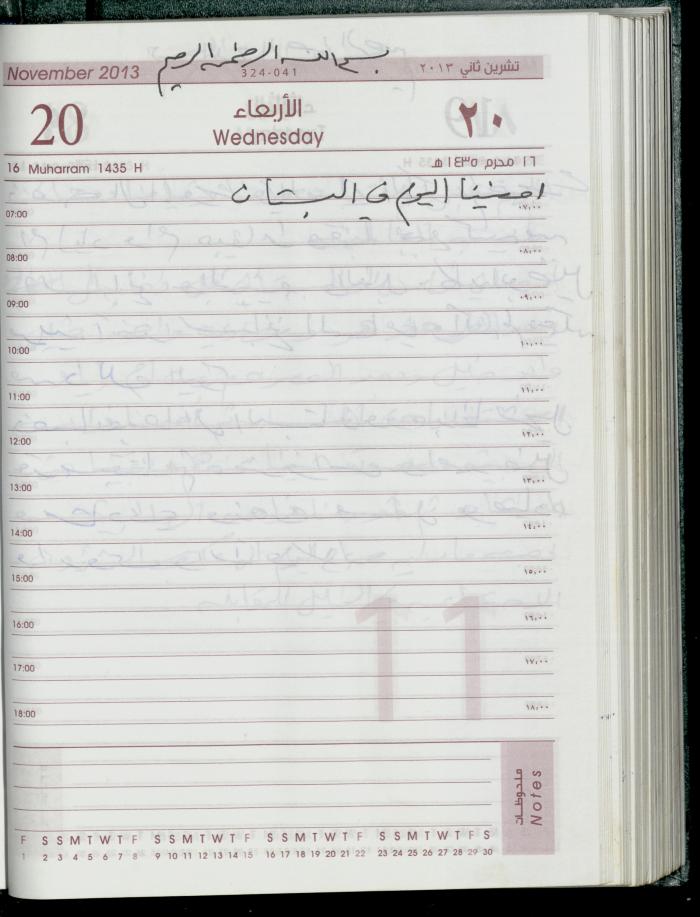 بسم الله الرحمن الرحيم
November 2013
324-041
تشرين ثاني ٢٠١٣
20
الأربعاء
Wednesday
٢٠
16 Muharram 1435 H
١٦ محرم ١٤٣٥ هـ
امضينا اليوم في البستان
07:00 ٠٧,٠٠
08:00 ٠٨,٠٠
09:00 ٠٩,٠٠
10:00 ١٠,٠٠
11:00 ١١,٠٠
12:00 ١٢,٠٠
13:00 ١٣,٠٠
14:00 ١٤,٠٠
15:00 ١٥,٠٠
16:00 ١٦,٠٠
17:00 ١٧,٠٠
18:00 ١٨,٠٠
11
ملحوظات
Notes
F S S M T W T F S S M T W T F S S M T W T F S S M T W T F S
1 2 3 4 5 6 7 8 9 10 11 12 13 14 15 16 17 18 19 20 21 22 23 24 25 26 27 28 29 30